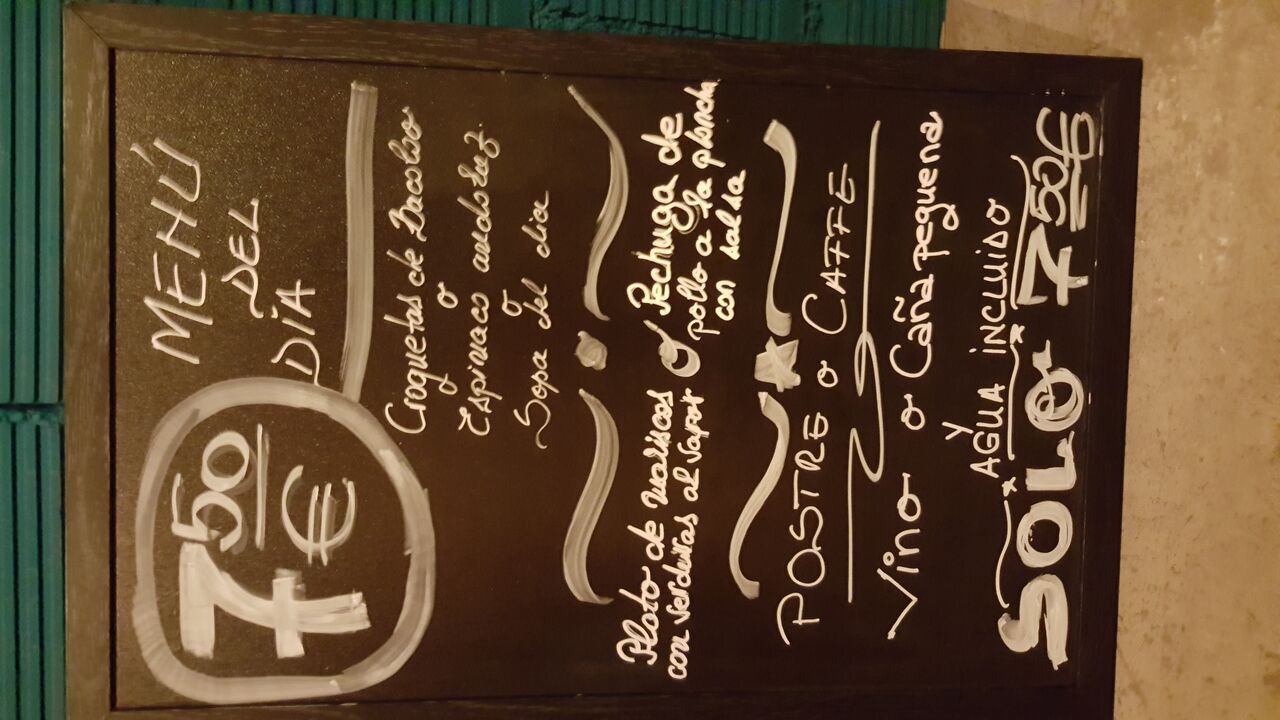 7 50 €
MENÚ
DEL
DÍA
Croquetas de Bacalao
o
Espinaco andoluz.
o
Sopa del dia
Plato de mariscos
con verduritas al vapor
o
Pechuga de
pollo a la plancha
con salsa
POSTRE o CAFFE
Vino o Caña pequena
Y
* AGUA INCLUIDO *
SOLO 7 50€